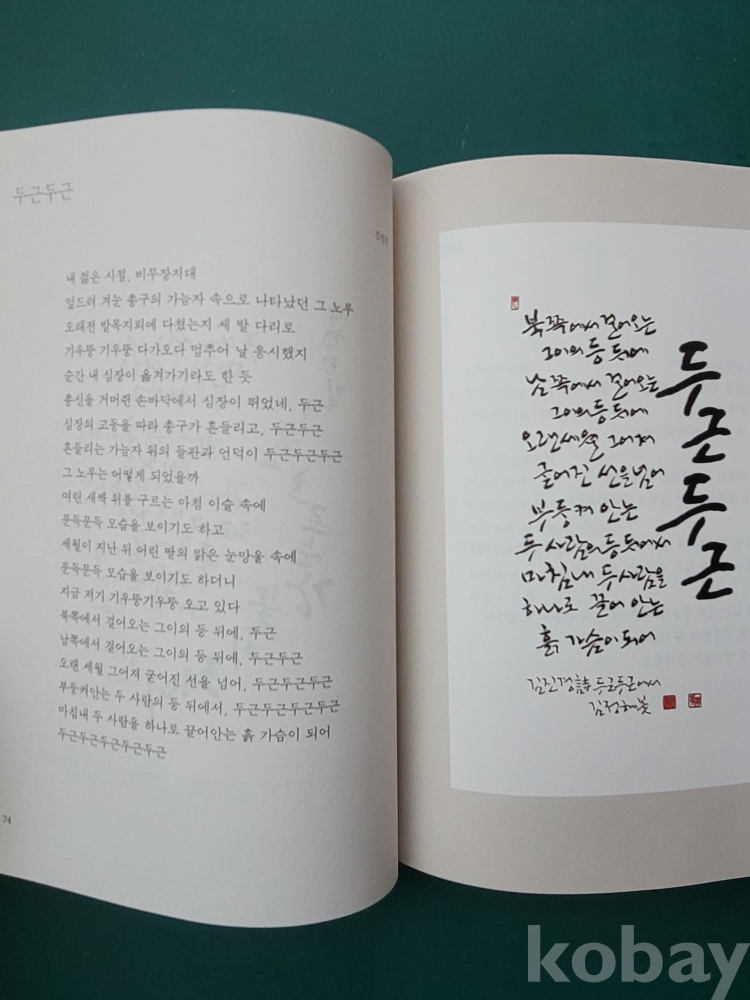 두근두근
내 젊은 시절, 비무장지대
엎드려 겨눈 총구의 가늠자 속으로 나타났던 그 노루
오래전 발목지뢰에 다쳤는지 세 발 다리로
기우뚱 기우뚱 다가오다 멈추어 날 응시했지
순간 내 심장이 옮겨가기라도 한 듯
총신을 거머쥔 손바닥에서 심장이 뛰었네, 두근
심장의 고동을 따라 총구가 흔들리고, 두근두근
흔들리는 가늠자 위의 들판과 언덕이 두근두근두근
그 노루는 어떻게 되었을까
여린 새싹 위를 구르는 아침 이슬 속에
문득문득 모습을 보이기도 하고
세월이 지난 뒤 어린 딸의 맑은 눈망울 속에
문득문득 모습을 보이기도 하더니
지금 저기 기우뚱기우뚱 오고 있다
북쪽에서 걸어오는 그이의 등 뒤에, 두근
남쪽에서 걸어오는 그이의 등 뒤에, 두근두근
오랜 세월 그어져 굳어진 선을 넘어, 두근두근두근
부둥켜안는 두 사람의 등 뒤에서, 두근두근두근두근
마침내 두 사람을 하나로 끌어안는 흙 가슴이 되어
두근두근두근두근두근
74
두근두근
북쪽에서 걸어오는
그이의 등 뒤에
남쪽에서 걸어오는
그이의 등 뒤에
오랜 세월 그어져
굳어진 선을 넘어
부둥켜 안는
두 사람의 등 뒤에서
마침내 두 사람을
하나로 끌어 안는
흙 가슴이 되어
김진경 詩 두근두근에서
kobay